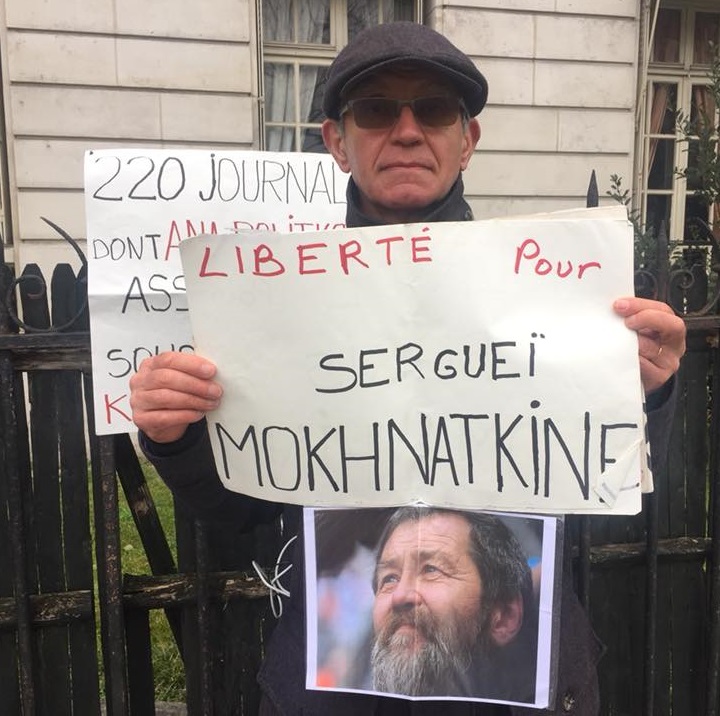 220 JOURNAL
DONT ANA POLITKO
ASS
SOUS
K
LIBERTÉ Pour
SERGUEÏ
MOKHNATKINE